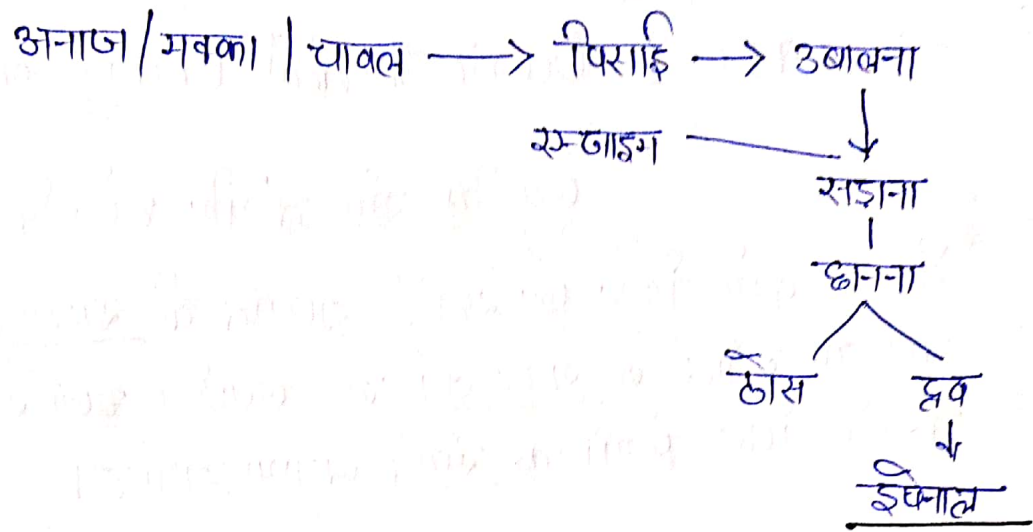 अनाज / मक्का | चावल → पिसाई → उबालना
एन्जाइम
सड़ाना
छानना
ठोस द्रव
इथेनाल